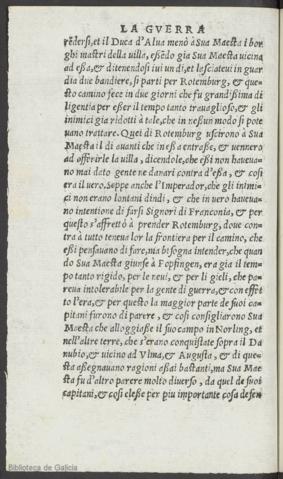 LA GVERRA
rẽdersi, et il Duca d'Alua menò à Sua Maesta i bor
ghi mastri della uilla, essẽdo gia Sua Maesta uicina
ad essa, & ditenendosi iui un di, et lasciateui in guar
dia due bandiere, si partì per Rotemburg, & que
sto camino fece in due giorni che fu grandissima di
ligentia per esser il tempo tanto trauaglioso, & gli
inimici gia ridotti à tale, che in nessun modo si pote
uano trattare. Quei di Rotemburg uscirono à Sua
Maesta il dì auanti che in essa entrasse, & uennero
ad offerirle la uilla, dicendole, che essi non haueua-
no mai dato gente ne danari contra d'essa, & così
era il uero. Seppe anche l'Imperador, che gli inimi-
ci non erano lontani dindi, & che in uero haueua-
no intentione di farsi Signori di Franconia, & per
questo s'affrettò à prender Rotemburg, doue con-
tra à tutto teneua lor la frontiera per il camino, che
essi pensauano di fare, ma bisogna intender, che quan
do Sua Maesta giunse à Fopfingen, era gia il tem-
po tanto rigido, per le neui, & per li gieli, che pa-
reua intolerabile per la gente di guerra, & con effet
to l'era, & per questo la maggior parte de suoi ca-
pitani furono di parere, & così consigliarono Sua
Maesta che alloggiasse il suo campo in Norling, et
nell'altre terre, che s'erano conquistate sopra il Da
nubio, & uicino ad Vlma, & Augusta, & di que-
sta assegnauano ragioni assai bastanti, ma Sua Mae
sta fu d'altro parere molto diuerso, da quel de suoi
capitani, & così elesse per piu importante cosa defen
Biblioteca de Galicia